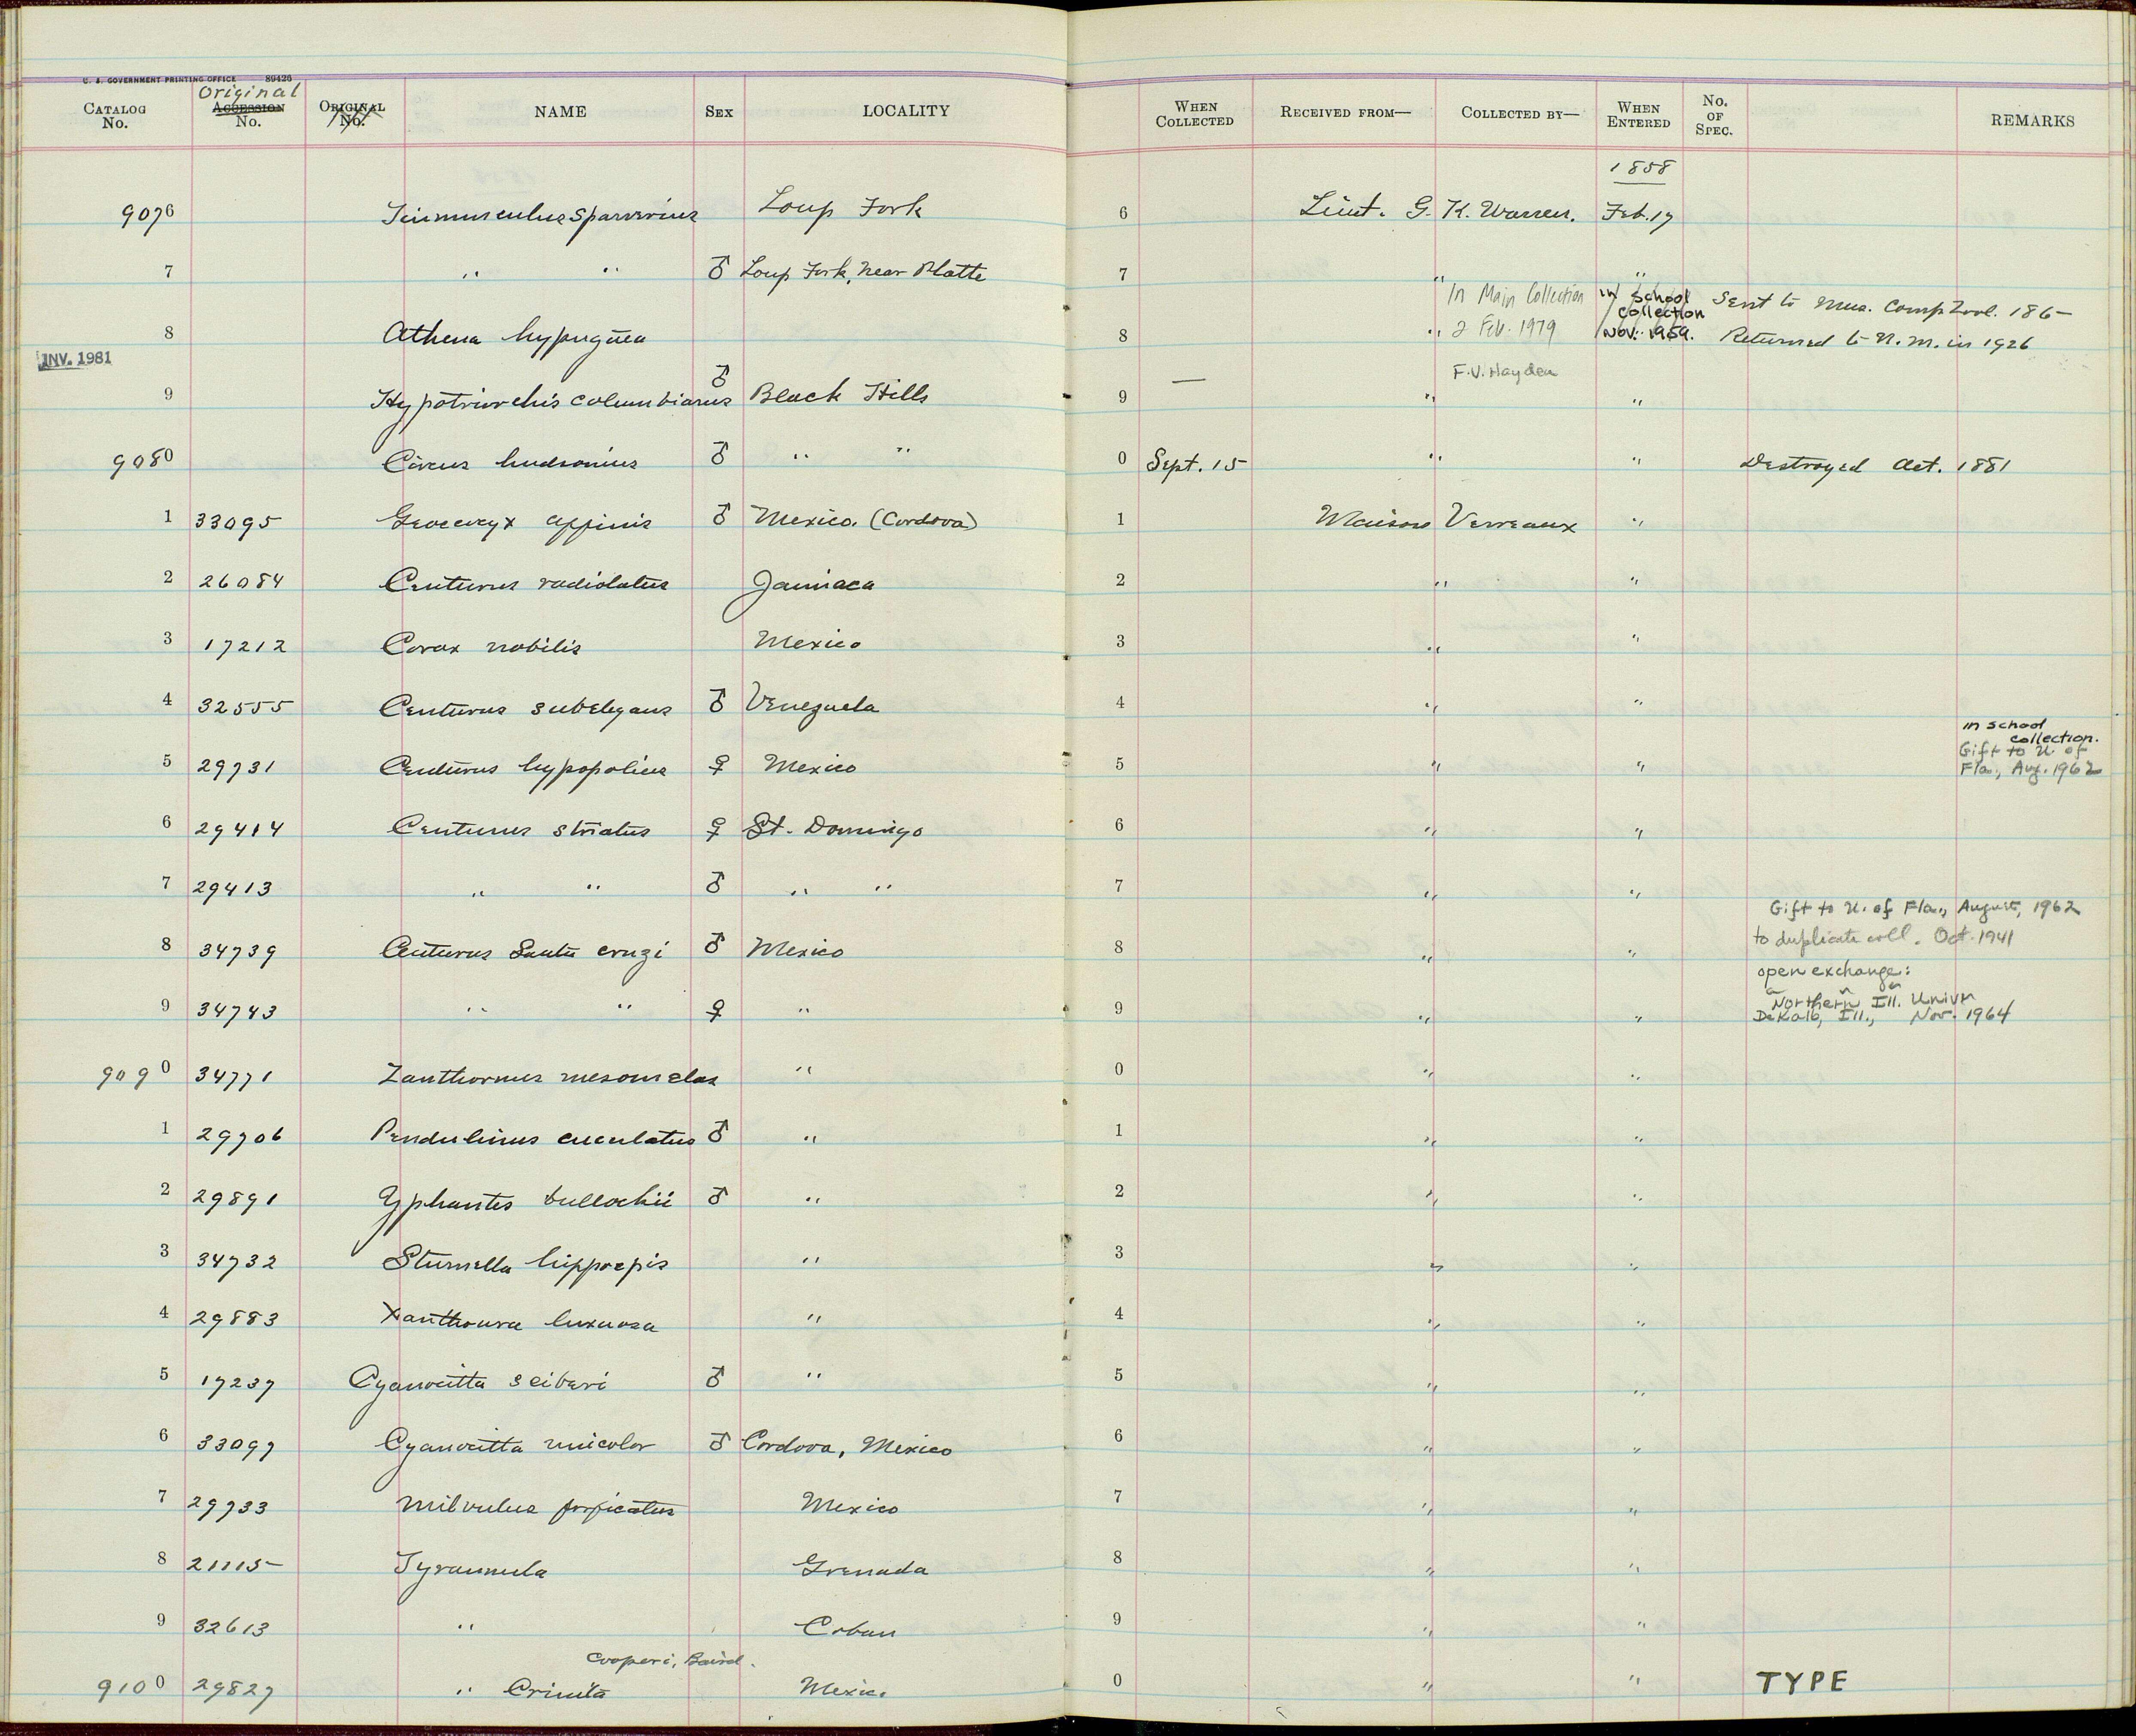 U. S. GOVERNMENT PRINTING OFFICE 89426
Original
CATALOG No. ACCESSION No. ORIGINAL No. NAME SEX LOCALITY WHEN COLLECTED RECEIVED FROM— COLLECTED BY— WHEN ENTERED No. OF SPEC. REMARKS
1858
9076 Tinnunculus sparverius Loup Fork 6 Lieut. G. K. Warren. Feb. 17
7 " " ♂ Loup Fork, near Platte 7 " "
In Main Collection in school Sent to Mus. Comp Zool. 186-
collection
8 Athena hypugaea 8 " 2 Feb. 1979 Nov. 1959. Returned to N. M. in 1926
INV. 1981
F.V. Hayden
9 Hypotriorchis columbianus ♂ Black Hills 9 — " "
9080 Circus hudsonius ♂ " " 0 Sept. 15 " " Destroyed Oct. 1881
1 33095 Geococcyx affinis ♂ Mexico. (Cordova) 1 Maison Verreaux "
2 26084 Centurus radiolatus Jamiaca 2 " "
3 17212 Corax nobilis Mexico 3 " "
4 32555 Centurus subelegans ♂ Venezuela 4 " "
in school
collection.
Gift to U. of
5 29731 Centurus hypopolius ♀ Mexico 5 " " Fla., Aug. 1962
6 29414 Centurus striatus ♀ St. Domingo 6 " "
7 29413 " " ♂ " " 7 " "
Gift to U. of Fla., August, 1962
8 34739 Centurus Santa cruzi ♂ Mexico 8 " " to duplicate coll. Oct. 1941
open exchange:
Northern Ill. Univ.
9 34743 " " ♀ " 9 " " DeKalb, Ill., Nov. 1964
9090 34771 Xanthornus mesomelas " 0 " "
1 29706 Pendulinus cuculatus ♂ " 1 " "
2 29891 Yphantes bullockii ♂ " 2 " "
3 34732 Sturnella hippocrepis " 3 " "
4 29883 Xanthoura luxuosa " 4 " "
5 17237 Cyanocitta seiberi ♂ " 5 " "
6 33097 Cyanocitta unicolor ♂ Cordova, Mexico 6 " "
7 29933 Milvulus forficatus Mexico 7 " "
8 21115 Tyrannula Grenada 8 " "
9 32613 " Coban 9 " "
Cooperi, Baird.
9100 29827 " Crinita Mexico 0 " " TYPE